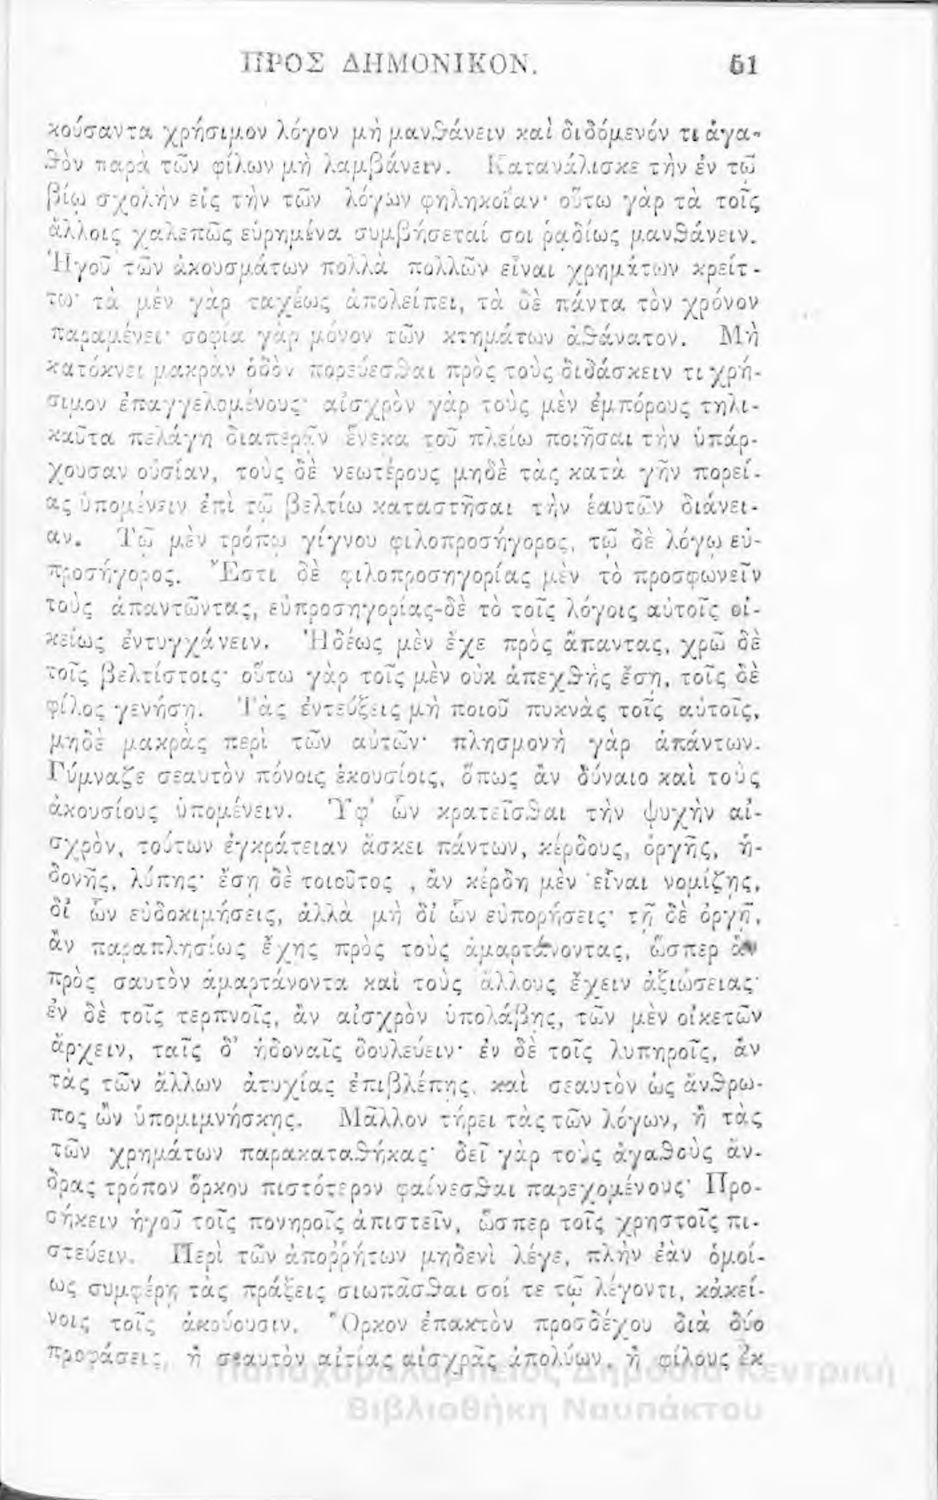 ΠΡΟΣ ΔΗΜΟΝΙΚΟΝ. 51
κούσαντα χρήσιμον λόγον μὴ μανθάνειν καὶ διδόμενόν τι ἀγα-
θὸν παρὰ τῶν φίλων μὴ λαμβάνειν. Κατανάλισκε τὴν ἐν τῶ
βίῳ σχολὴν εἰς τὴν τῶν λόγων φηληκοΐαν· οὕτω γὰρ τὰ τοῖς
ἄλλοις χαλεπῶς εὑρημένα συμβήσεταί σοι ῥαδίως μανθάνειν.
Ἡγοῦ τῶν ἀκουσμάτων πολλὰ πολλῶν εἶναι χρημάτων κρείτ-
τω· τὰ μὲν γὰρ ταχέως ἀπολείπει, τὰ δὲ πάντα τὸν χρόνον
παραμένει· σοφία γὰρ μόνον τῶν κτημάτων ἀθάνατον. Μὴ
κατόκνει μακρὰν ὁδὸν πορεύεσθαι πρὸς τοὺς διδάσκειν τι χρή-
σιμον ἐπαγγελομένους· αἰσχρὸν γὰρ τοὺς μὲν ἐμπόρους τηλι-
καῦτα πελάγη διαπερᾶν ἕνεκα τοῦ πλείω ποιῆσαι τὴν ὑπάρ-
χουσαν οὐσίαν, τοὺς δὲ νεωτέρους μηδὲ τὰς κατὰ γῆν πορεί-
ας ὑπομένειν ἐπὶ τῶ βελτίω καταστῆσαι τὴν ἑαυτῶν διάνει-
αν. Τῶ μὲν τρόπῳ γίγνου φιλοπροσήγορος, τῶ δὲ λόγῳ εὐ-
προσήγορος. Ἔστι δὲ φιλοπροσηγορίας μὲν τὸ προσφωνεῖν
τοὺς ἀπαντῶντας, εὐπροσηγορίας-δὲ τὸ τοῖς λόγοις αὐτοῖς οἰ-
κείως ἐντυγχάνειν. Ἡδέως μὲν ἔχε πρὸς ἅπαντας, χρῶ δὲ
τοῖς βελτίστοις· οὕτω γὰρ τοῖς μὲν οὐκ ἀπεχθὴς ἔσῃ, τοῖς δὲ
φίλος γενήσῃ. Τὰς ἐντεύξεις μὴ ποιοῦ πυκνὰς τοῖς αὐτοῖς,
μηδὲ μακρὰς περὶ τῶν αὐτῶν· πλησμονὴ γὰρ ἁπάντων.
Γύμναζε σεαυτὸν πόνοις ἑκουσίοις, ὅπως ἂν δύναιο καὶ τοὺς
ἀκουσίους ὑπομένειν. Ὑφ' ὧν κρατεῖσθαι τὴν ψυχὴν αἰ-
σχρὸν, τούτων ἐγκράτειαν ἄσκει πάντων, κέρδους, ὀργῆς, ἡ-
δονῆς, λύπης· ἔσῃ δὲ τοιοῦτος , ἂν κέρδη μὲν εἶναι νομίζῃς,
δἰ ὧν εὐδοκιμήσεις, ἀλλὰ μὴ δἰ ὧν εὐπορήσεις· τῇ δὲ ὀργῇ,
ἂν παραπλησίως ἔχῃς πρὸς τοὺς ἁμαρτάνοντας, ὥσπερ ἂν
πρὸς σαυτὸν ἁμαρτάνοντα καὶ τοὺς ἄλλους ἔχειν ἀξιώσειας·
ἐν δὲ τοῖς τερπνοῖς, ἂν αἰσχρὸν ὑπολάβῃς, τῶν μὲν οἰκετῶν
ἄρχειν, ταῖς δ' ἡδοναῖς δουλεύειν· ἐν δὲ τοῖς λυπηροῖς, ἂν
τὰς τῶν ἄλλων ἀτυχίας ἐπιβλέπῃς, καὶ σεαυτὸν ὡς ἄνθρω-
πος ὢν ὑπομιμνήσκῃς. Μᾶλλον τήρει τὰς τῶν λόγων, ἢ τὰς
τῶν χρημάτων παρακαταθήκας· δεῖ γὰρ τοὺς ἀγαθοὺς ἄν-
δρας τρόπον ὅρκου πιστότερον φαίνεσθαι παρεχομένους· Προ-
σήκειν ἡγοῦ τοῖς πονηροῖς ἀπιστεῖν, ὥσπερ τοῖς χρηστοῖς πι-
στεύειν. Περὶ τῶν ἀποῤῥήτων μηδενὶ λέγε, πλὴν ἐὰν ὁμοί-
ως συμφέρῃ τὰς πράξεις σιωπᾶσθαι σοί τε τῶ λέγοντι, κἀκεί-
νοις τοῖς ἀκούουσιν. Ὅρκον ἐπακτὸν προσδέχου διὰ δύο
προφάσεις, ἢ σεαυτὸν αἰτίας αἰσχρᾶς ἀπολύων, ἢ φίλους ἐκ
Παπαχαραλάμπειος Δημόσια Κεντρική
Βιβλιοθήκη Ναυπάκτου